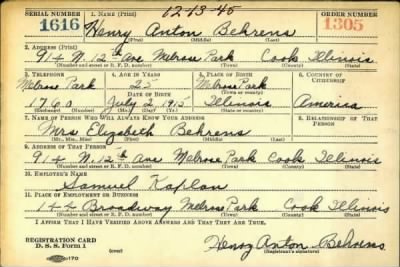 SERIAL NUMBER 1. NAME (Print) 12-13-45 ORDER NUMBER
1616 Henry Anton Behrens 1305
(First) (Middle) (Last)
2. ADDRESS (Print)
914 N. 12th Ave Melrose Park Cook Illinois
(Number and street or R. F. D. number) (Town) (County) (State)
3. TELEPHONE 4. AGE IN YEARS 5. PLACE OF BIRTH 6. COUNTRY OF CITIZENSHIP
Melrose Park 25 Melrose Park
DATE OF BIRTH (Town or county)
1760 July 2 1915 Illinois America
(Exchange) (Number) (Mo.) (Day) (Yr.) (State or country)
7. NAME OF PERSON WHO WILL ALWAYS KNOW YOUR ADDRESS 8. RELATIONSHIP OF THAT PERSON
Mrs Elizabeth Behrens
(Mr., Mrs., Miss) (First) (Middle) (Last)
9. ADDRESS OF THAT PERSON
914 N. 12th Ave Melrose Park Cook Illinois
(Number and street or R. F. D. number) (Town) (County) (State)
10. EMPLOYER'S NAME
Samuel Kaplan
11. PLACE OF EMPLOYMENT OR BUSINESS
144 Broadway Melrose Park Cook Illinois
(Number and street or R. F. D. number) (Town) (County) (State)
I AFFIRM THAT I HAVE VERIFIED ABOVE ANSWERS AND THAT THEY ARE TRUE.
REGISTRATION CARD
D. S. S. Form 1 (over) Henry Anton Behrens
(Registrant's signature)